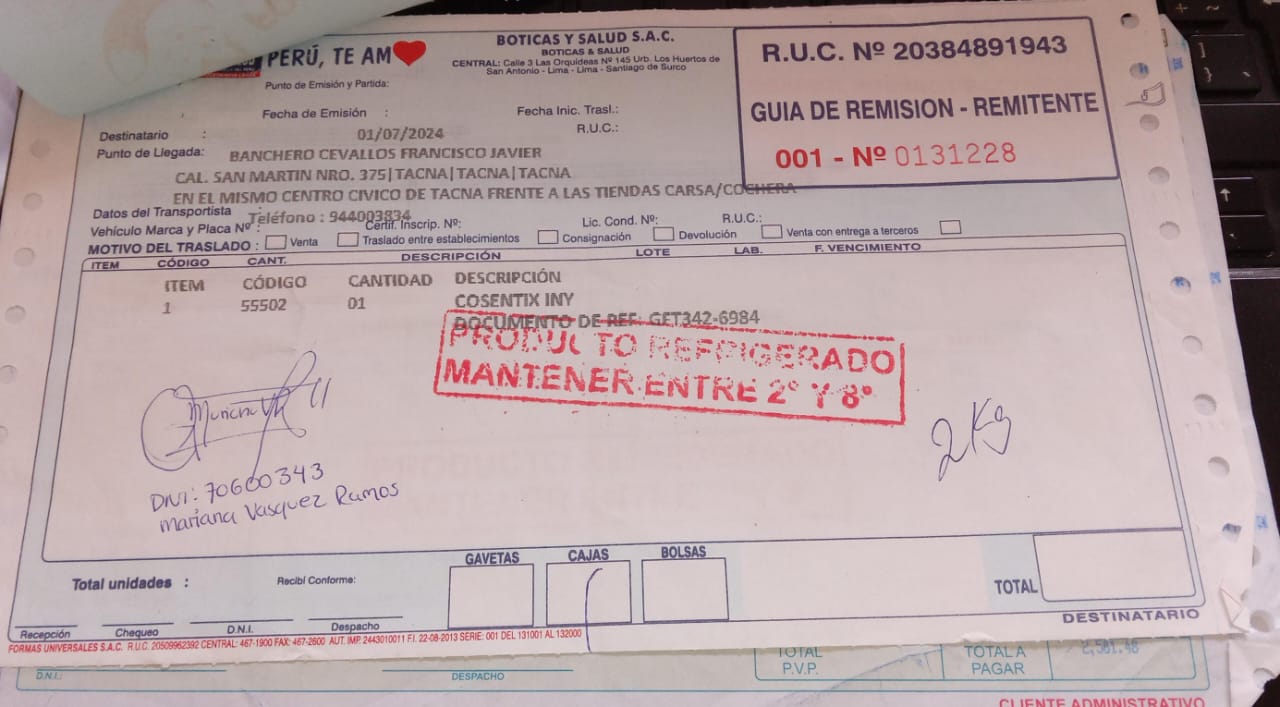 PERÚ, TE AM
BOTICAS Y SALUD S.A.C.
BOTICAS & SALUD
CENTRAL: Calle 3 Las Orquideas Nº 145 Urb. Los Huertos de
San Antonio - Lima - Lima - Santiago de Surco
R.U.C. Nº 20384891943
GUIA DE REMISION - REMITENTE
001 - Nº 0131228
Punto de Emisión y Partida:
Fecha de Emisión :
Fecha Inic. Trasl.:
Destinatario :
01/07/2024
R.U.C.:
Punto de Llegada:
BANCHERO CEVALLOS FRANCISCO JAVIER
CAL. SAN MARTIN NRO. 375|TACNA|TACNA|TACNA
EN EL MISMO CENTRO CIVICO DE TACNA FRENTE A LAS TIENDAS CARSA/COCHERA
Datos del Transportista
Teléfono : 944003834
Vehículo Marca y Placa Nº :
Certif. Inscrip. Nº:
Lic. Cond. Nº:
R.U.C.:
MOTIVO DEL TRASLADO : Venta Traslado entre establecimientos Consignación Devolución Venta con entrega a terceros
ITEM CÓDIGO CANT. DESCRIPCIÓN LOTE LAB. F. VENCIMIENTO
ITEM CÓDIGO CANTIDAD DESCRIPCIÓN
1 55502 01 COSENTIX INY
DOCUMENTO DE REF: GFT342-6984
PRODUCTO REFRIGERADO
MANTENER ENTRE 2° Y 8°
2Kg
DNI: 70600343
mariana Vasquez Ramos
Total unidades :
Recibí Conforme:
GAVETAS CAJAS BOLSAS
TOTAL
Recepción Chequeo D.N.I. Despacho
DESTINATARIO
FORMAS UNIVERSALES S.A.C. R.U.C. 20509962392 CENTRAL: 467-1900 FAX: 467-2600 AUT. IMP. 2443010011 F.I. 22-08-2013 SERIE: 001 DEL 131001 AL 132000
D.N.I.:
DESPACHO
TOTAL
P.V.P.
TOTAL A
PAGAR
2,501.48
CLIENTE ADMINISTRATIVO